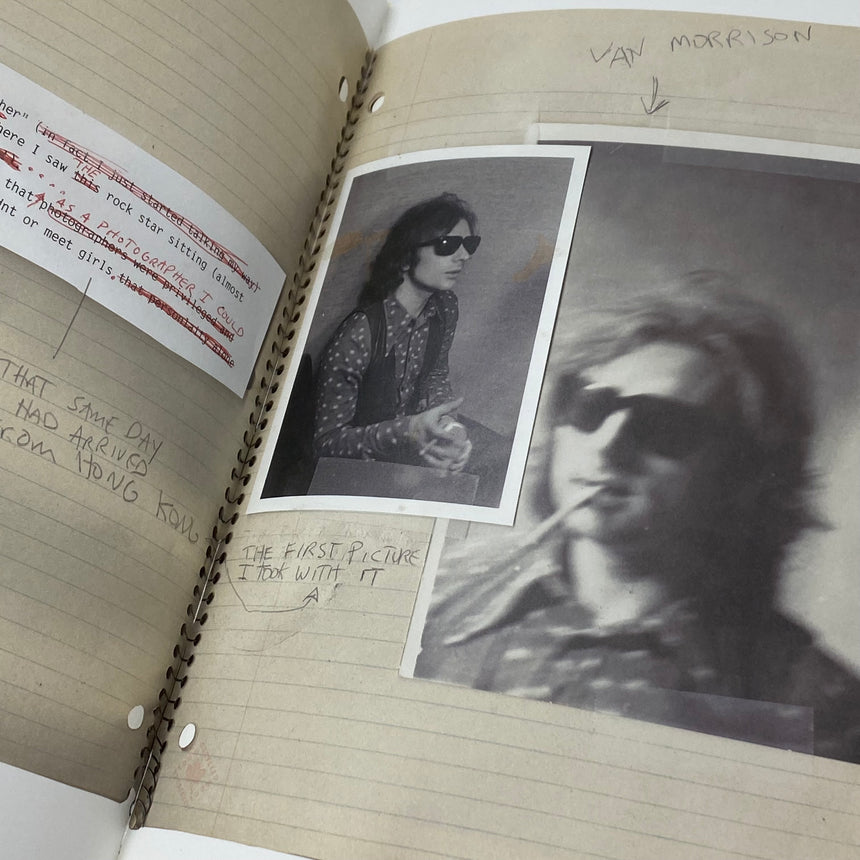 her" (in fact I just started talking my way)
THE
here I saw this rock star sitting (almost
AS A PHOTOGRAPHER I COULD
that photographers were privileged and
or meet girls. that personality alone
THAT SAME DAY
HAD ARRIVED
FROM HONG KONG
VAN MORRISON
THE FIRST PICTURE
I TOOK WITH IT
A